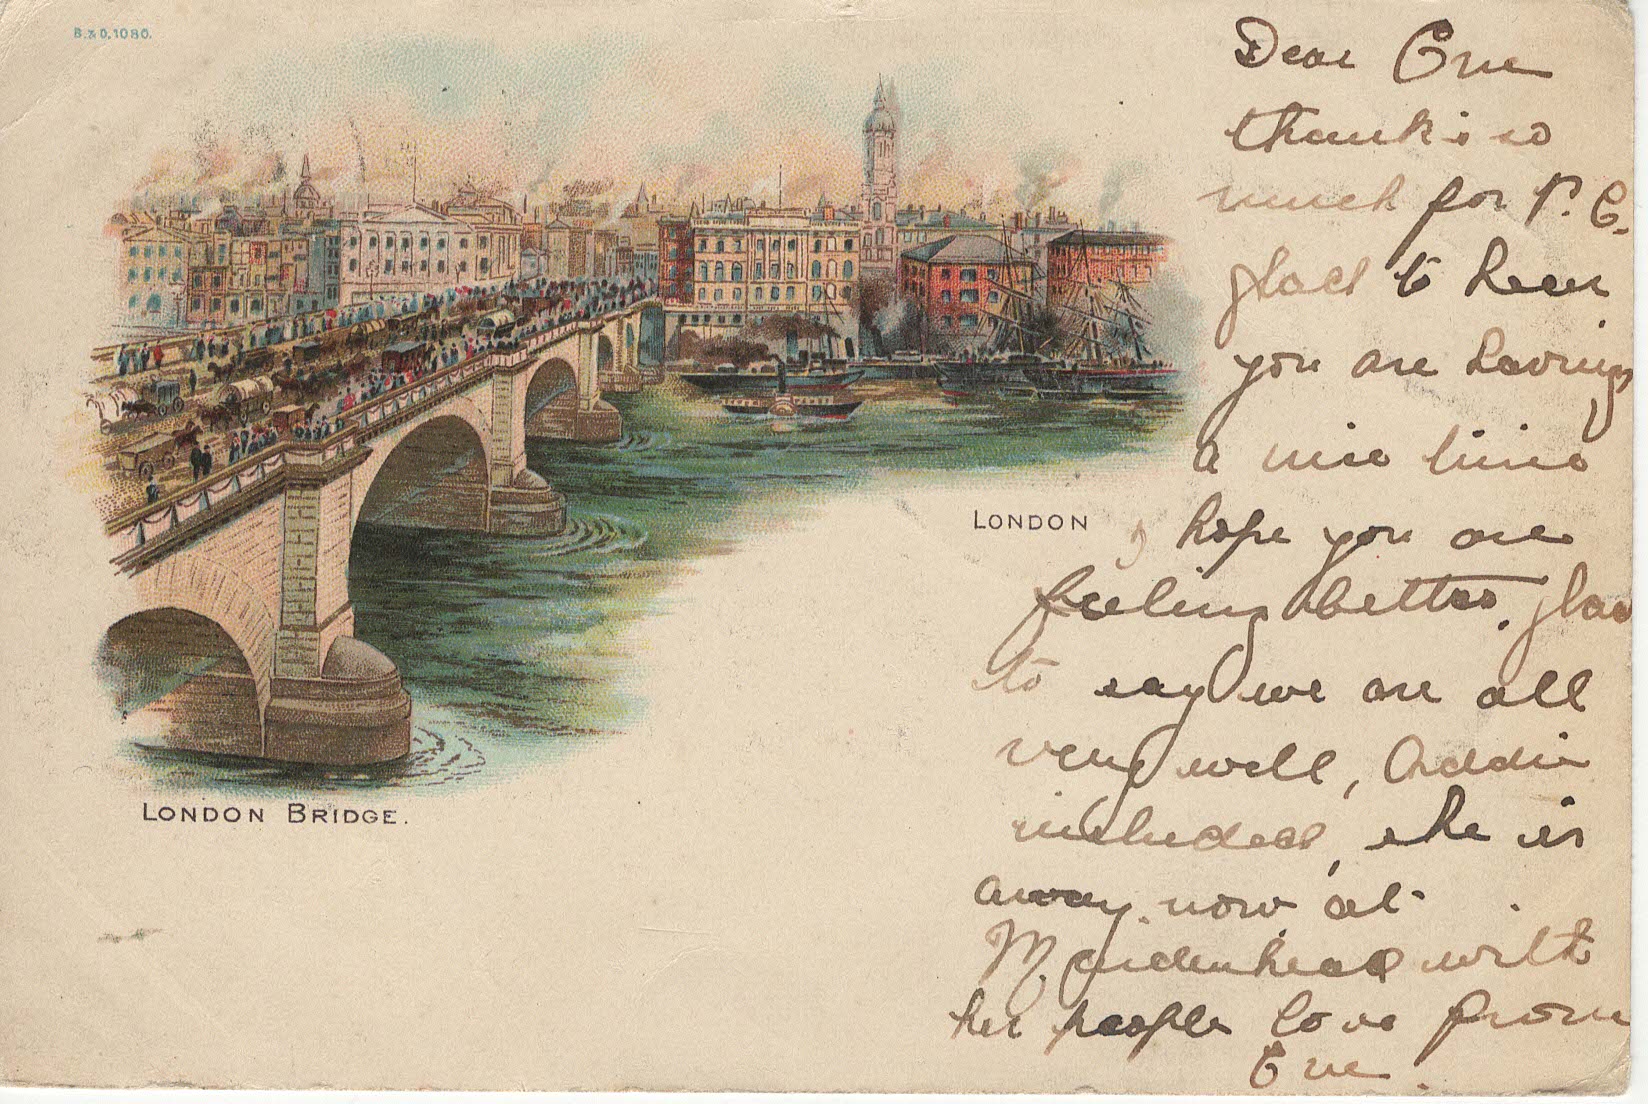 B. & D. 1080.
Dear
thanks so
much for P. C.
glad to hear
you are having
a nice time
LONDON
hope you are
feeling better. glad
to say we are all
very well, Addie
included, she is
away now at
Maidenhead with
her people love from
LONDON BRIDGE.